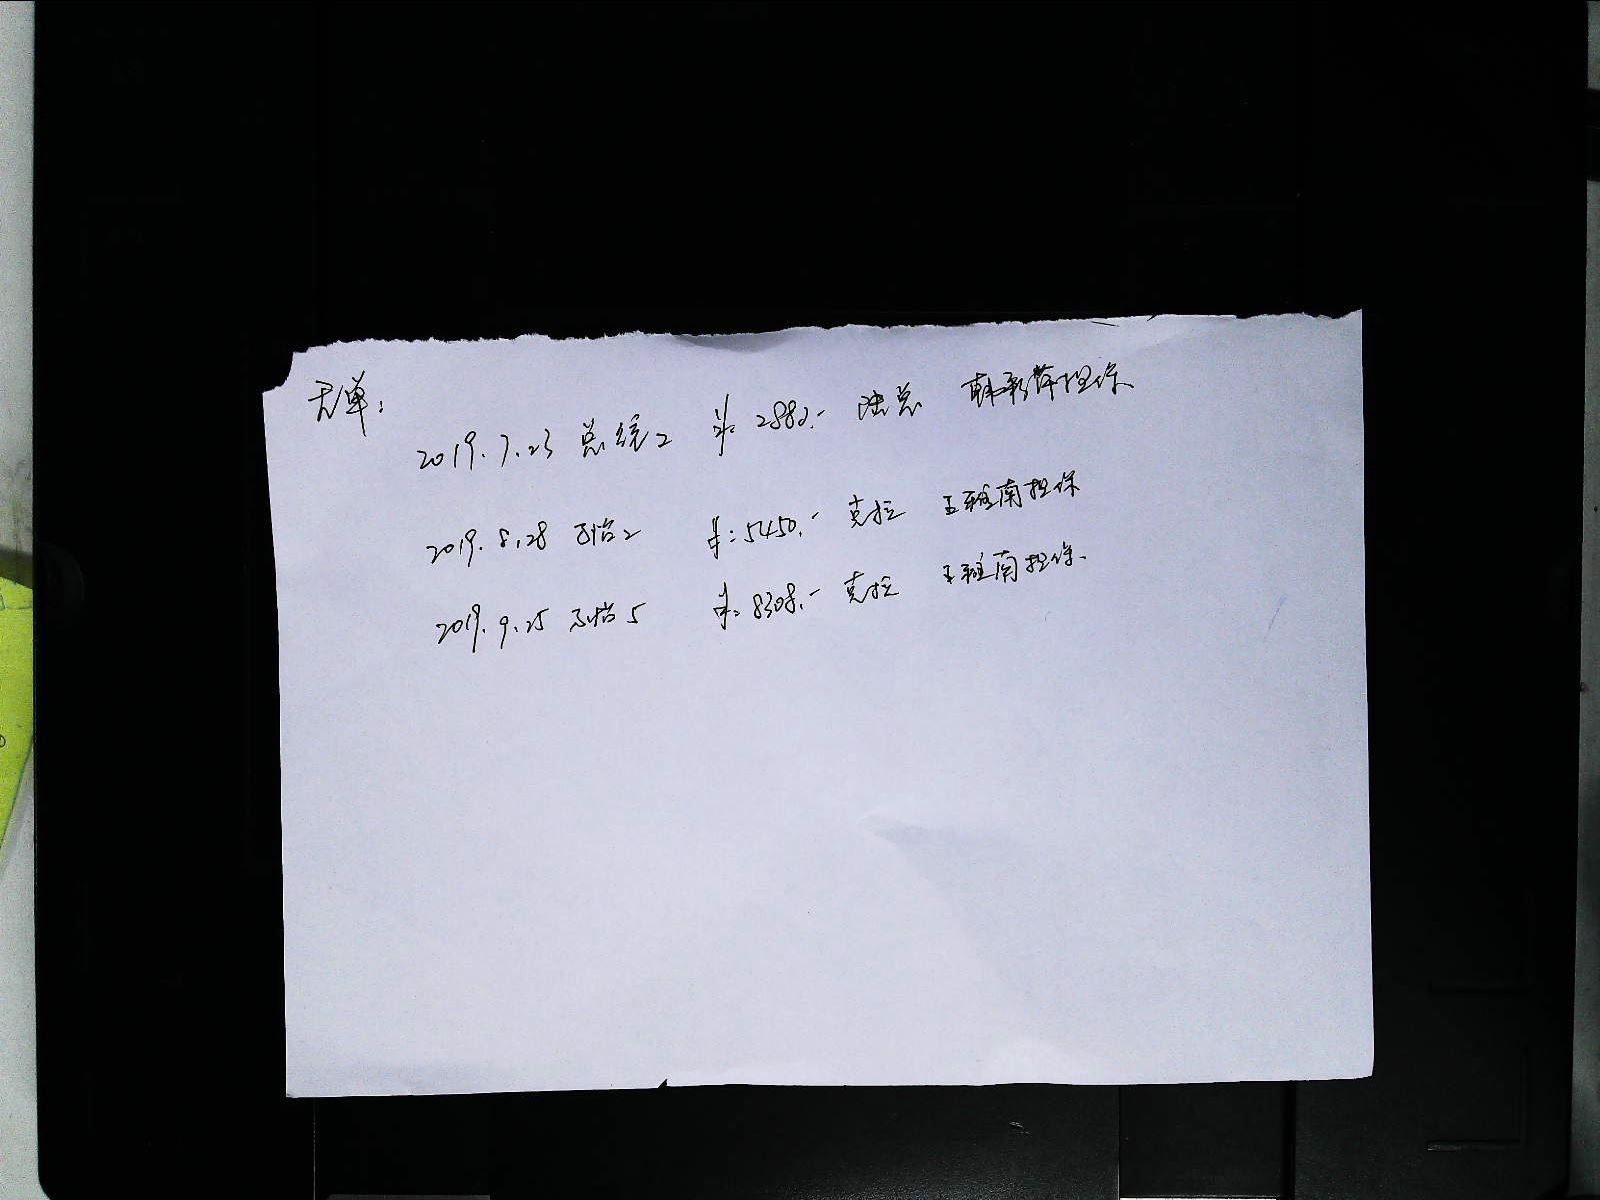 无单:
2019.7.23 总统2 半: 2882.- 陆总 韩彩萍担保
2019.8.28 子怡2 半: 5450.- 克拉 王雅南担保
2019.9.25 子怡5 半: 8308.- 克拉 王雅南担保.